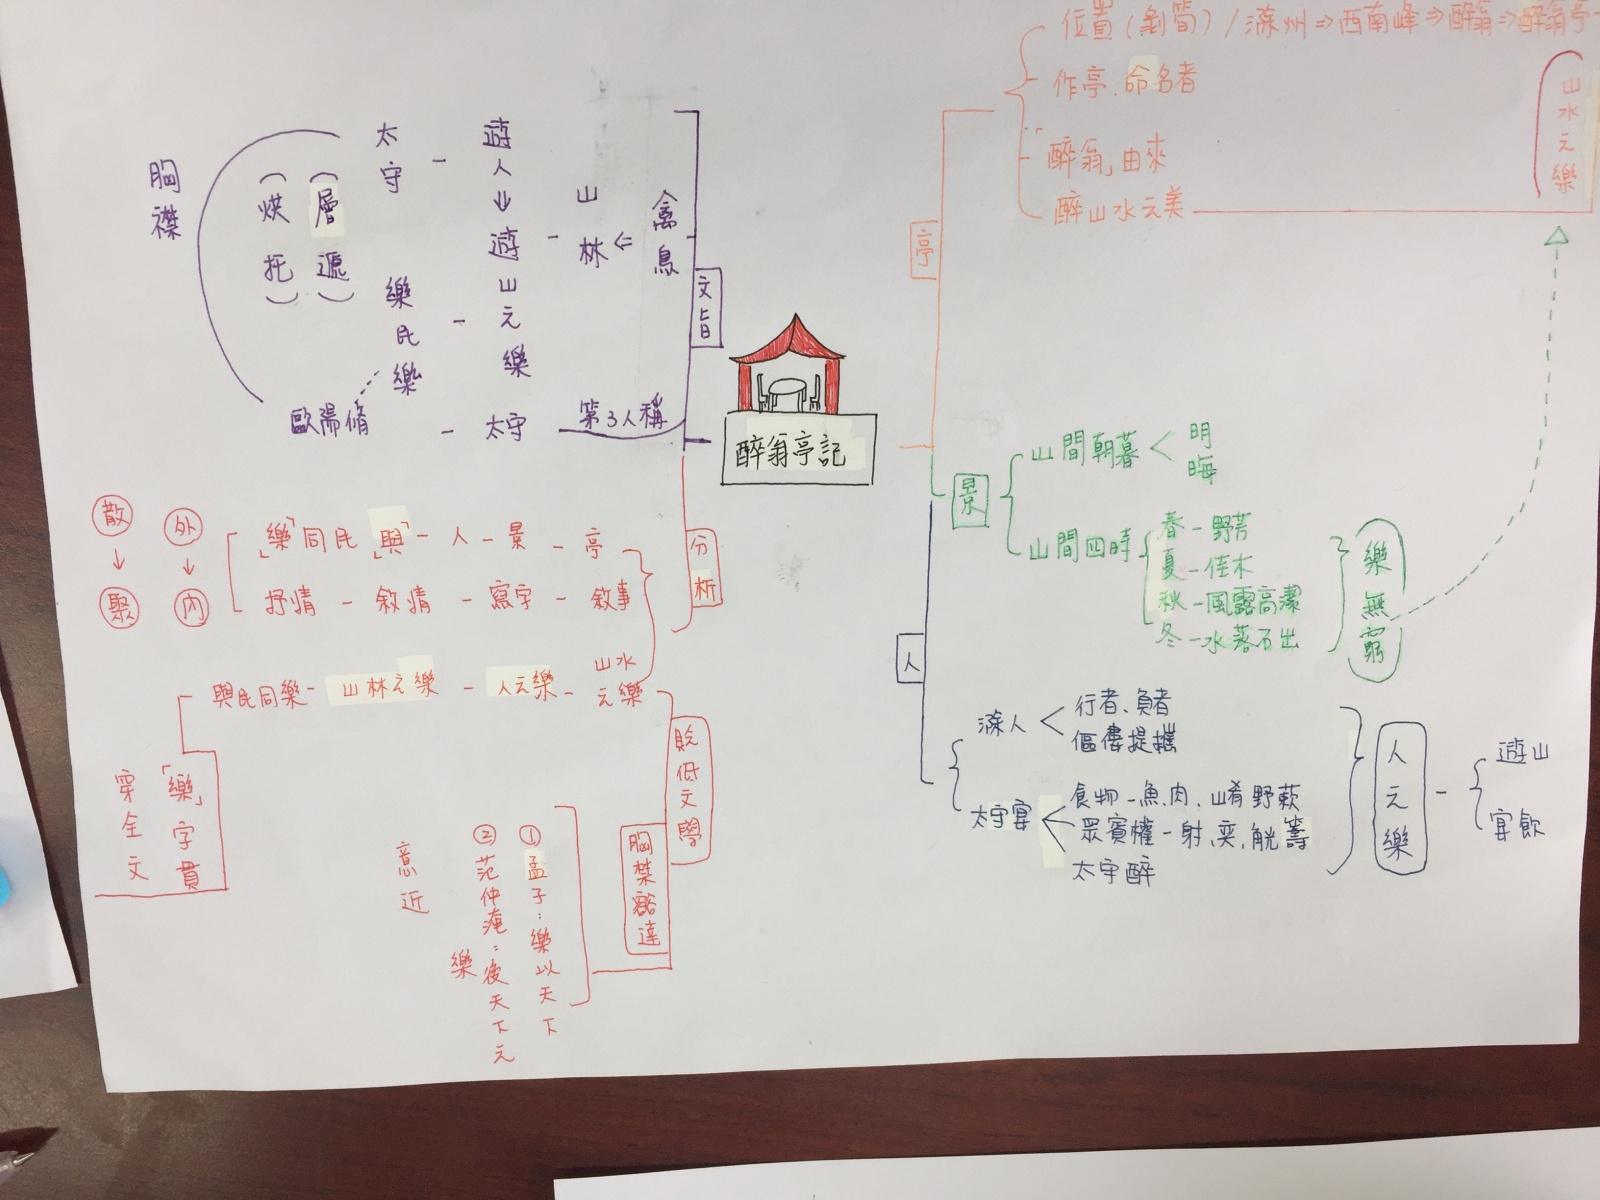 醉翁亭記
亭
位置(剝筍)/滁州⇒西南峰⇒醉翁⇒醉翁亭
作亭、命名者
「醉翁」由來
醉山水之美
山水之樂
景
山間朝暮
明
晦
山間四時
春-野芳
夏-佳木
秋-風露高潔
冬-水落石出
樂無窮
人
滁人
行者、負者
傴僂提攜
太守宴
食物-魚、肉、山肴野蔌
眾賓懽-射、奕、觥籌
太守醉
人之樂
遊山
宴飲
文旨
禽鳥
山林
遊人⇒遊山之樂
太守
樂民樂
(層遞)
(烘托)
胸襟
第3人稱
太守
歐陽脩
分析
亭-景-人-「與」民同「樂」
敘事-寫字-敘情-抒情
外→內
散→聚
山水之樂-人之樂-山林之樂-與民同樂
「樂」字貫
穿全文
貶低文學
胸襟豁達
①孟子:樂以天下
②范仲淹:後天下之
樂
意近